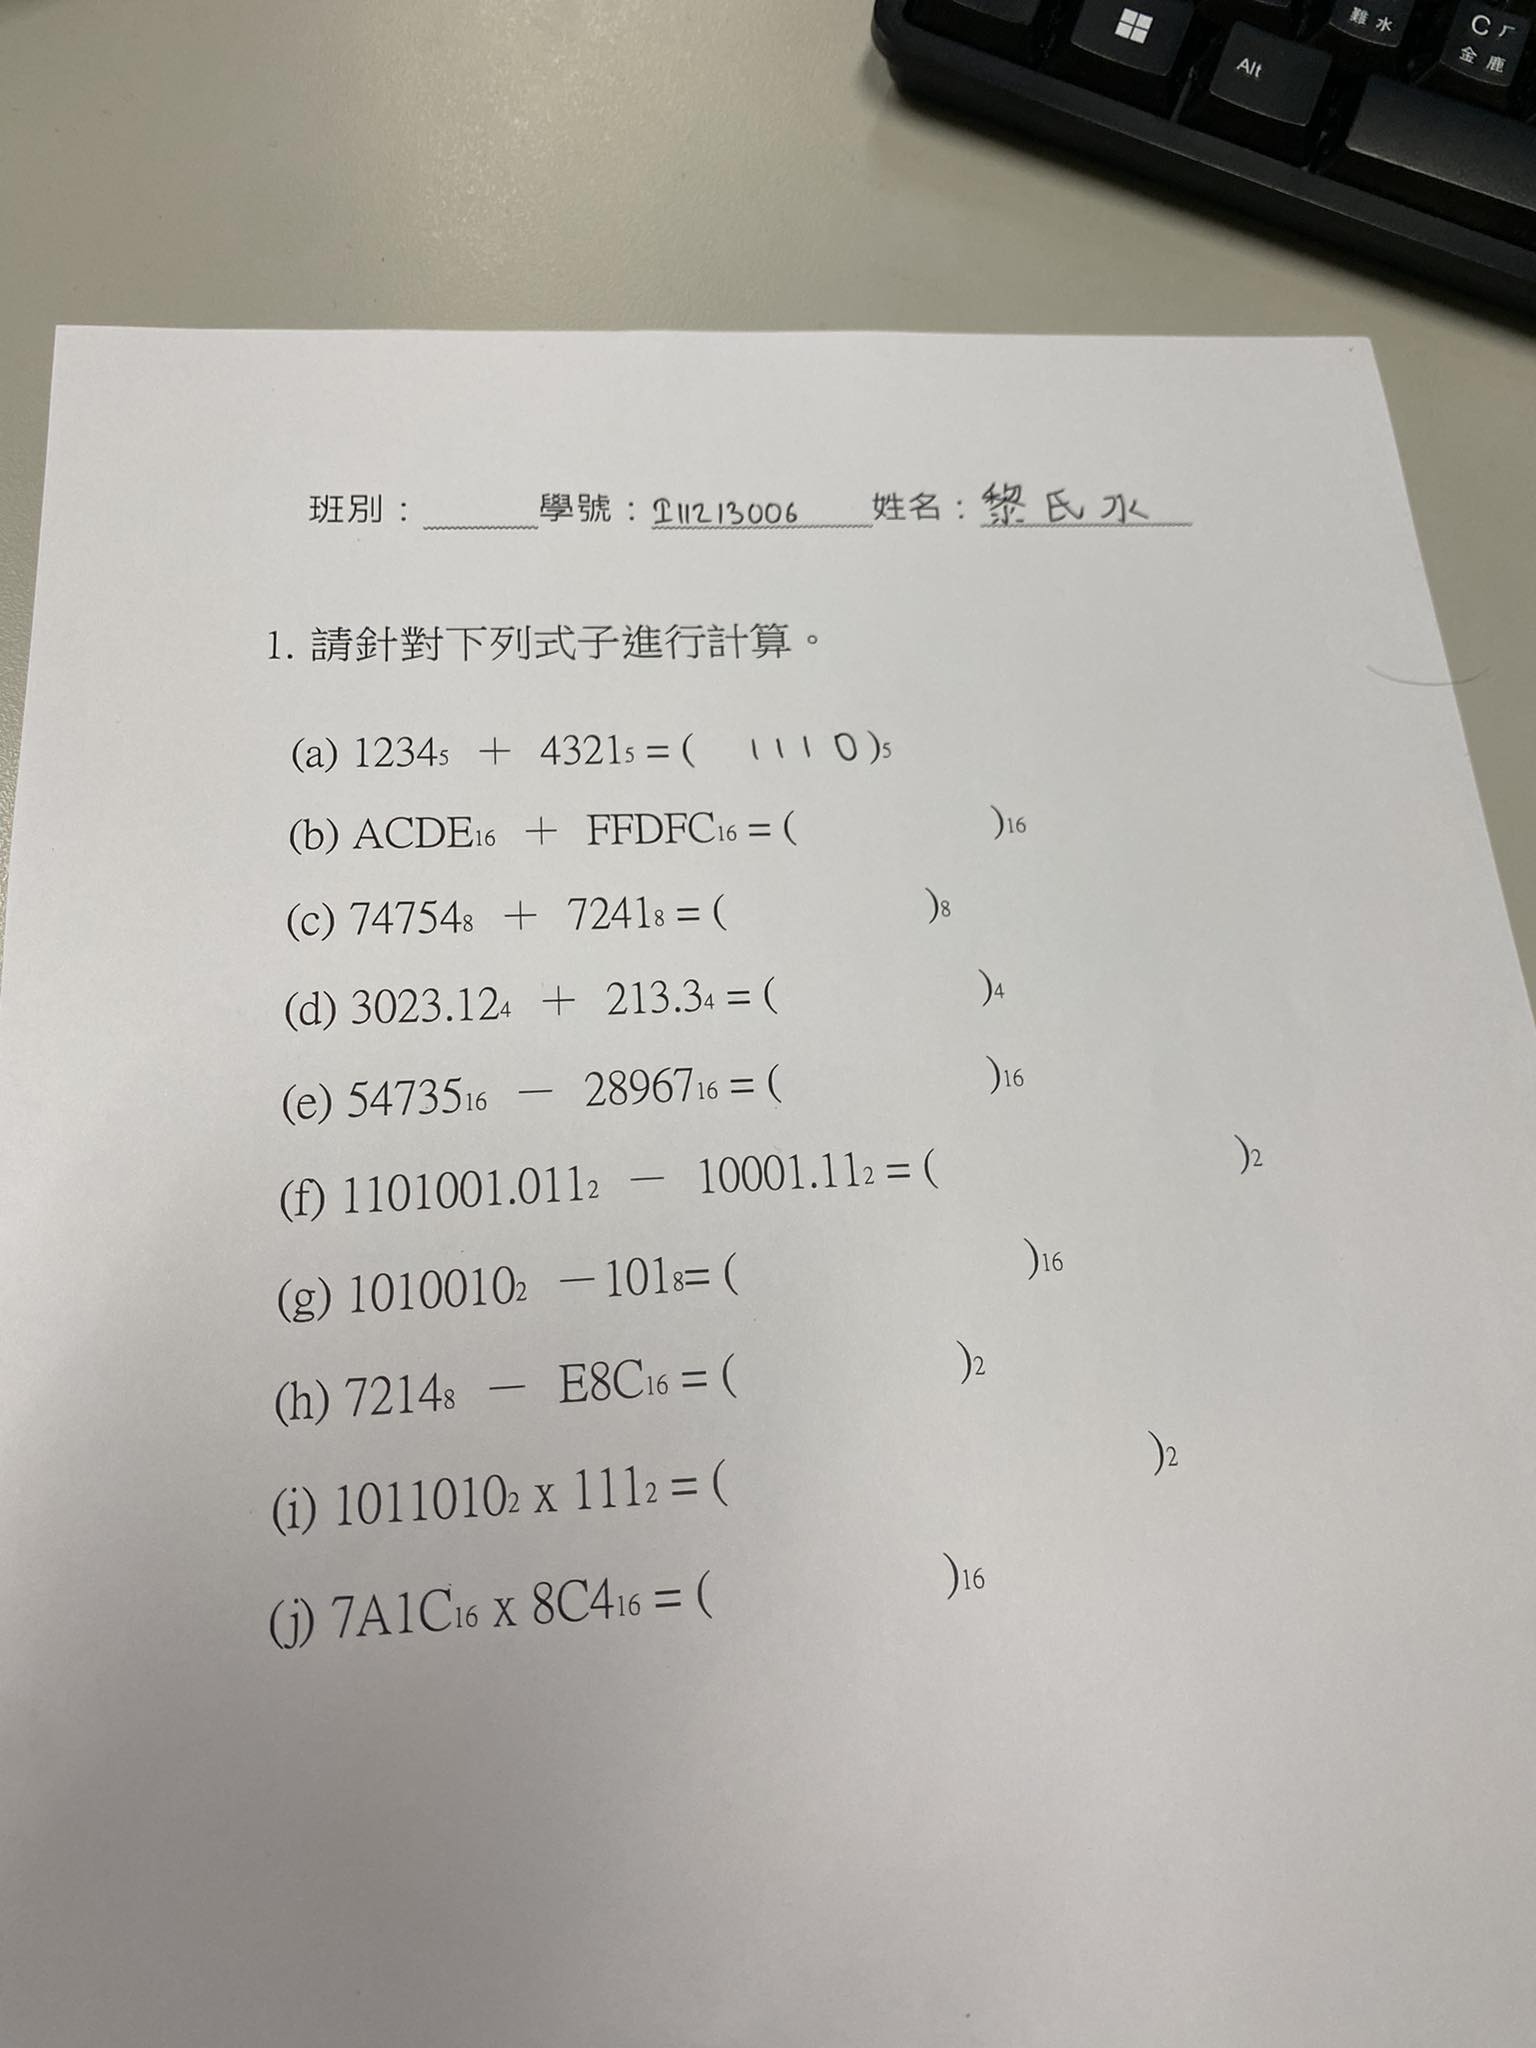 Alt
難 水
C ㄏ
金 鹿
班別：______學號：I11213006 姓名：黎氏水
1. 請針對下列式子進行計算。
(a) 1234₅ ＋ 4321₅ = ( 1110 )₅
(b) ACDE₁₆ ＋ FFDFC₁₆ = ( )₁₆
(c) 74754₈ ＋ 7241₈ = ( )₈
(d) 3023.12₄ ＋ 213.3₄ = ( )₄
(e) 54735₁₆ － 28967₁₆ = ( )₁₆
(f) 1101001.011₂ － 10001.11₂ = ( )₂
(g) 1010010₂ －101₈= ( )₁₆
(h) 7214₈ － E8C₁₆ = ( )₂
(i) 1011010₂ x 111₂ = ( )₂
(j) 7A1C₁₆ x 8C4₁₆ = ( )₁₆